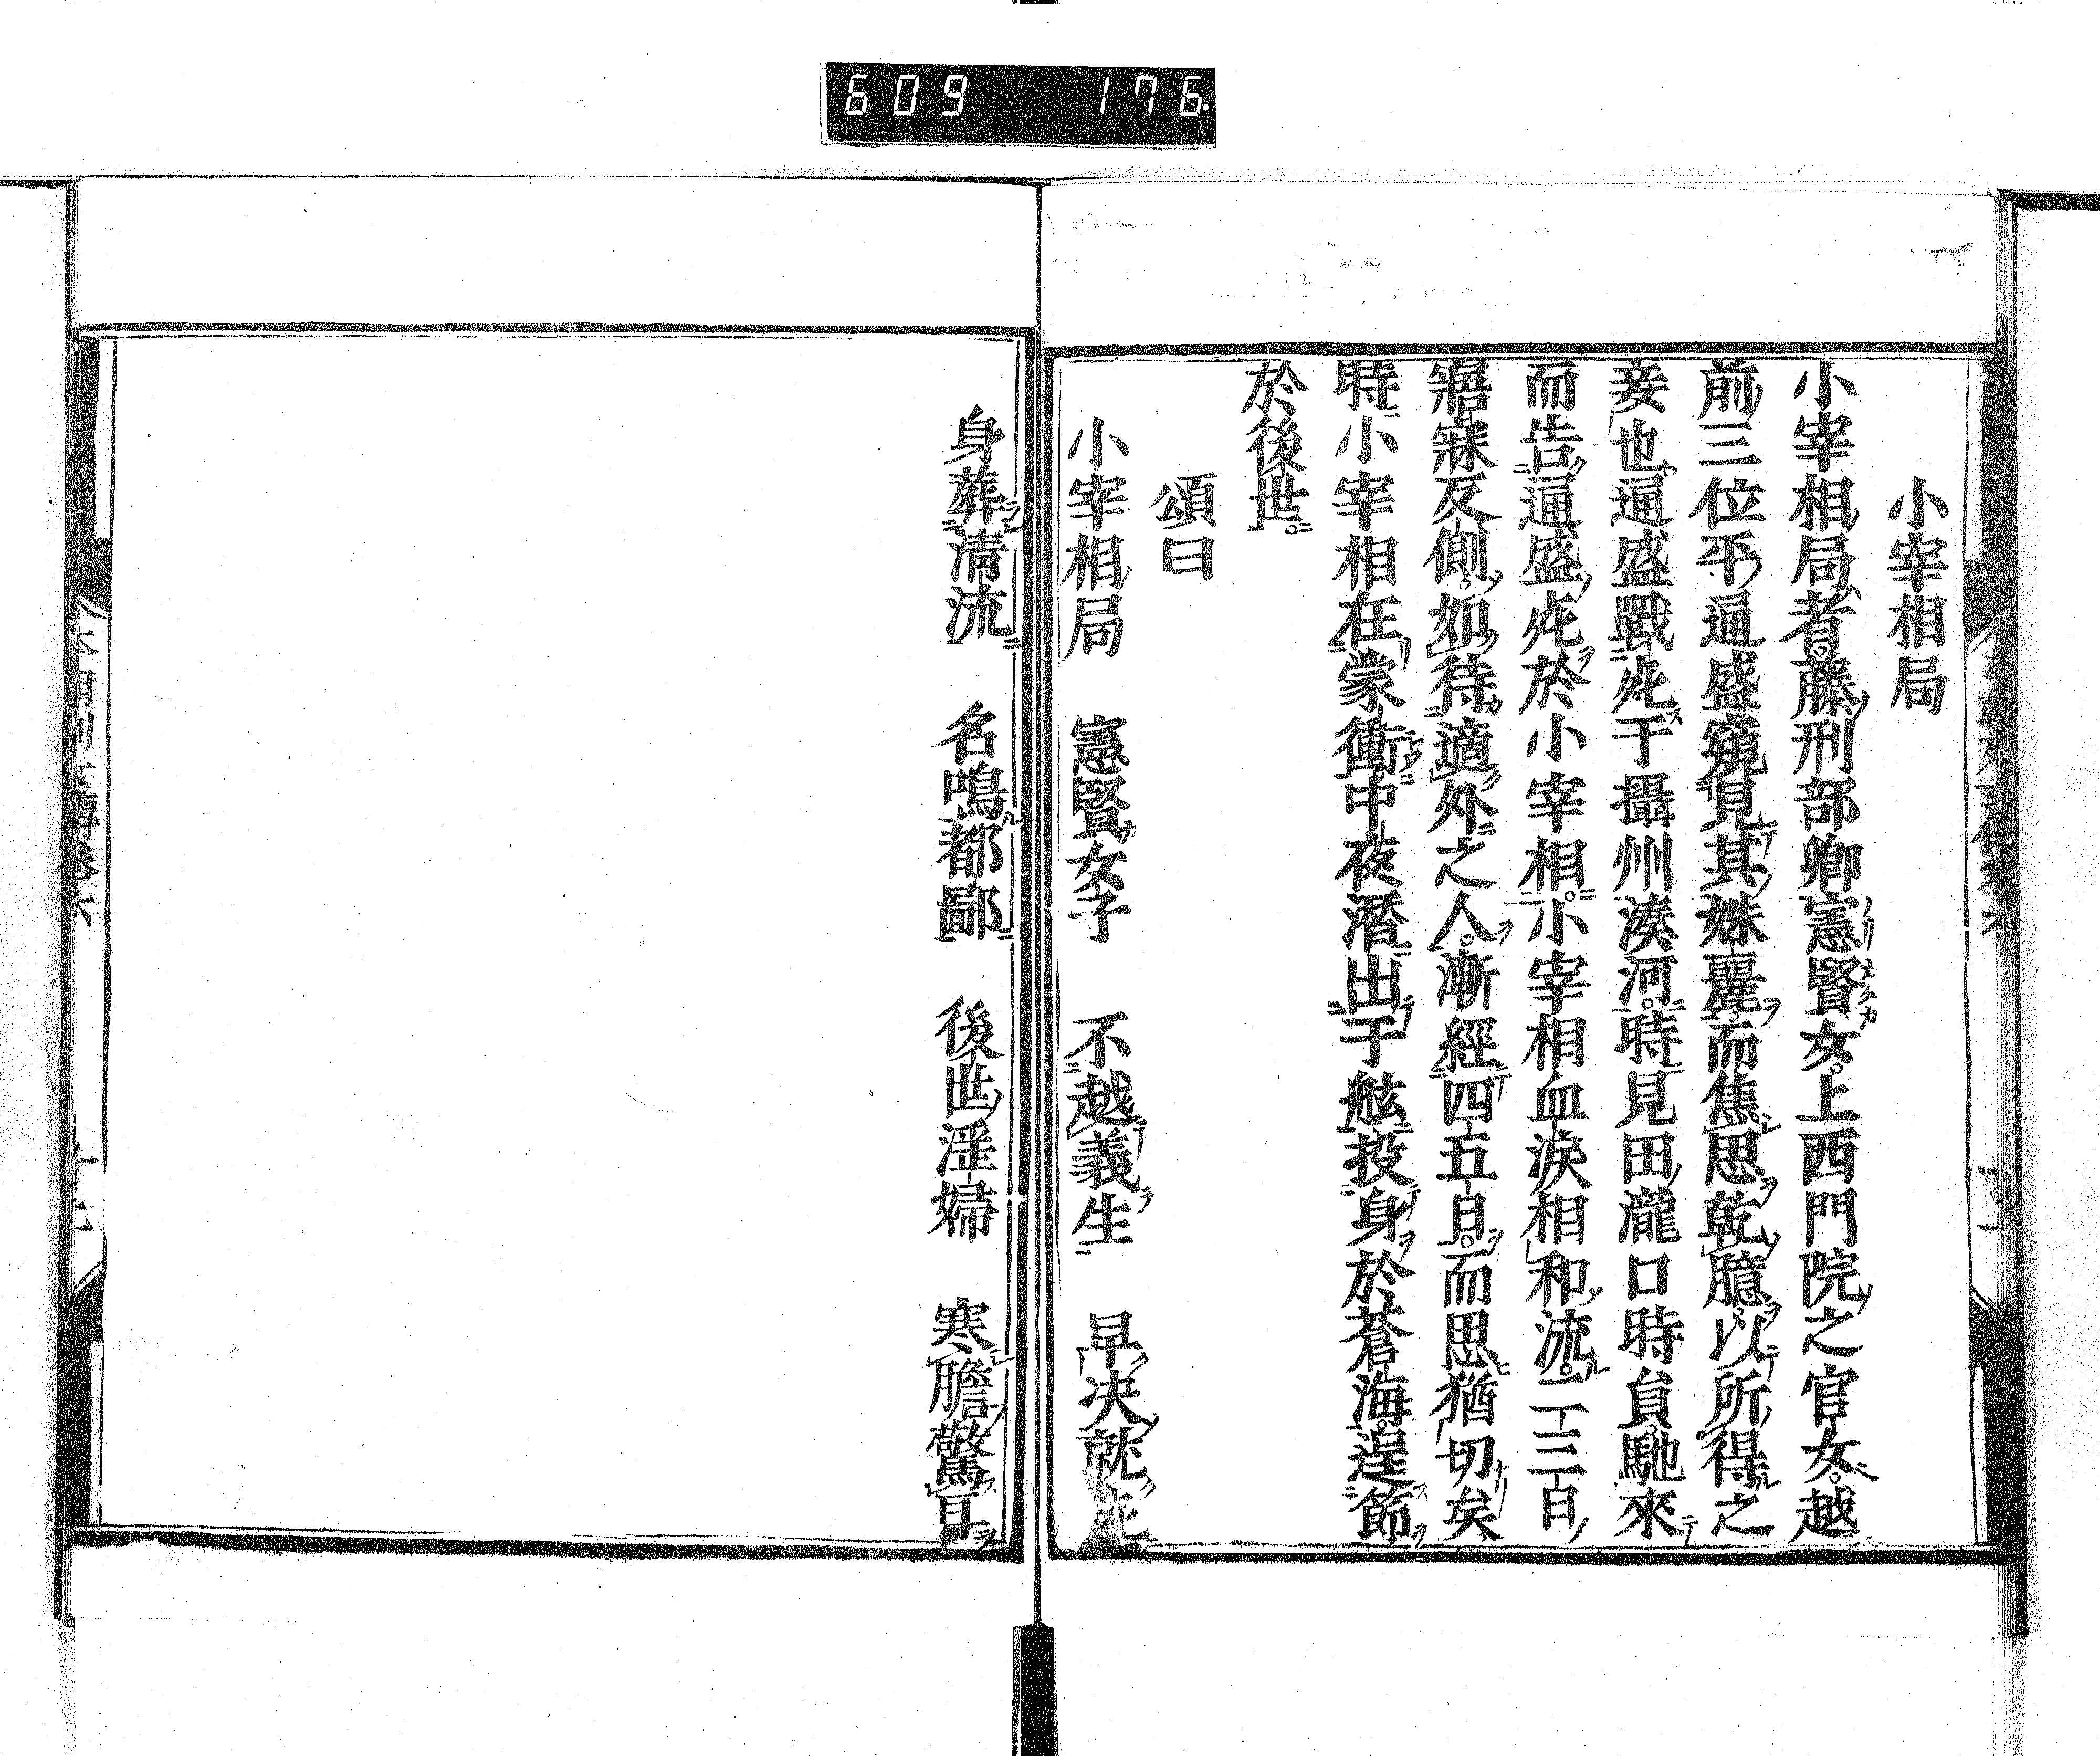 609 176.
小宰相局
小宰相局者。藤刑部卿憲賢女。上西門院之官女。越
前三位平通盛窺見其姝麗。而焦思乾臆。以所得之
妾也。通盛戰死于攝州湊河。時見田瀧口時員馳來
而告通盛死於小宰相。小宰相血淚相和流。二三日
寤寐反側。如待適外之人。漸經四五日。而思猶切矣
時小宰相在蒙衝。中夜潛出于舷。投身於蒼海。逞節
於後世。
頌曰
小宰相局 憲賢女子 不越義生 早决就死
身葬清流 名鳴都鄙 後世淫婦 寒膽驚耳